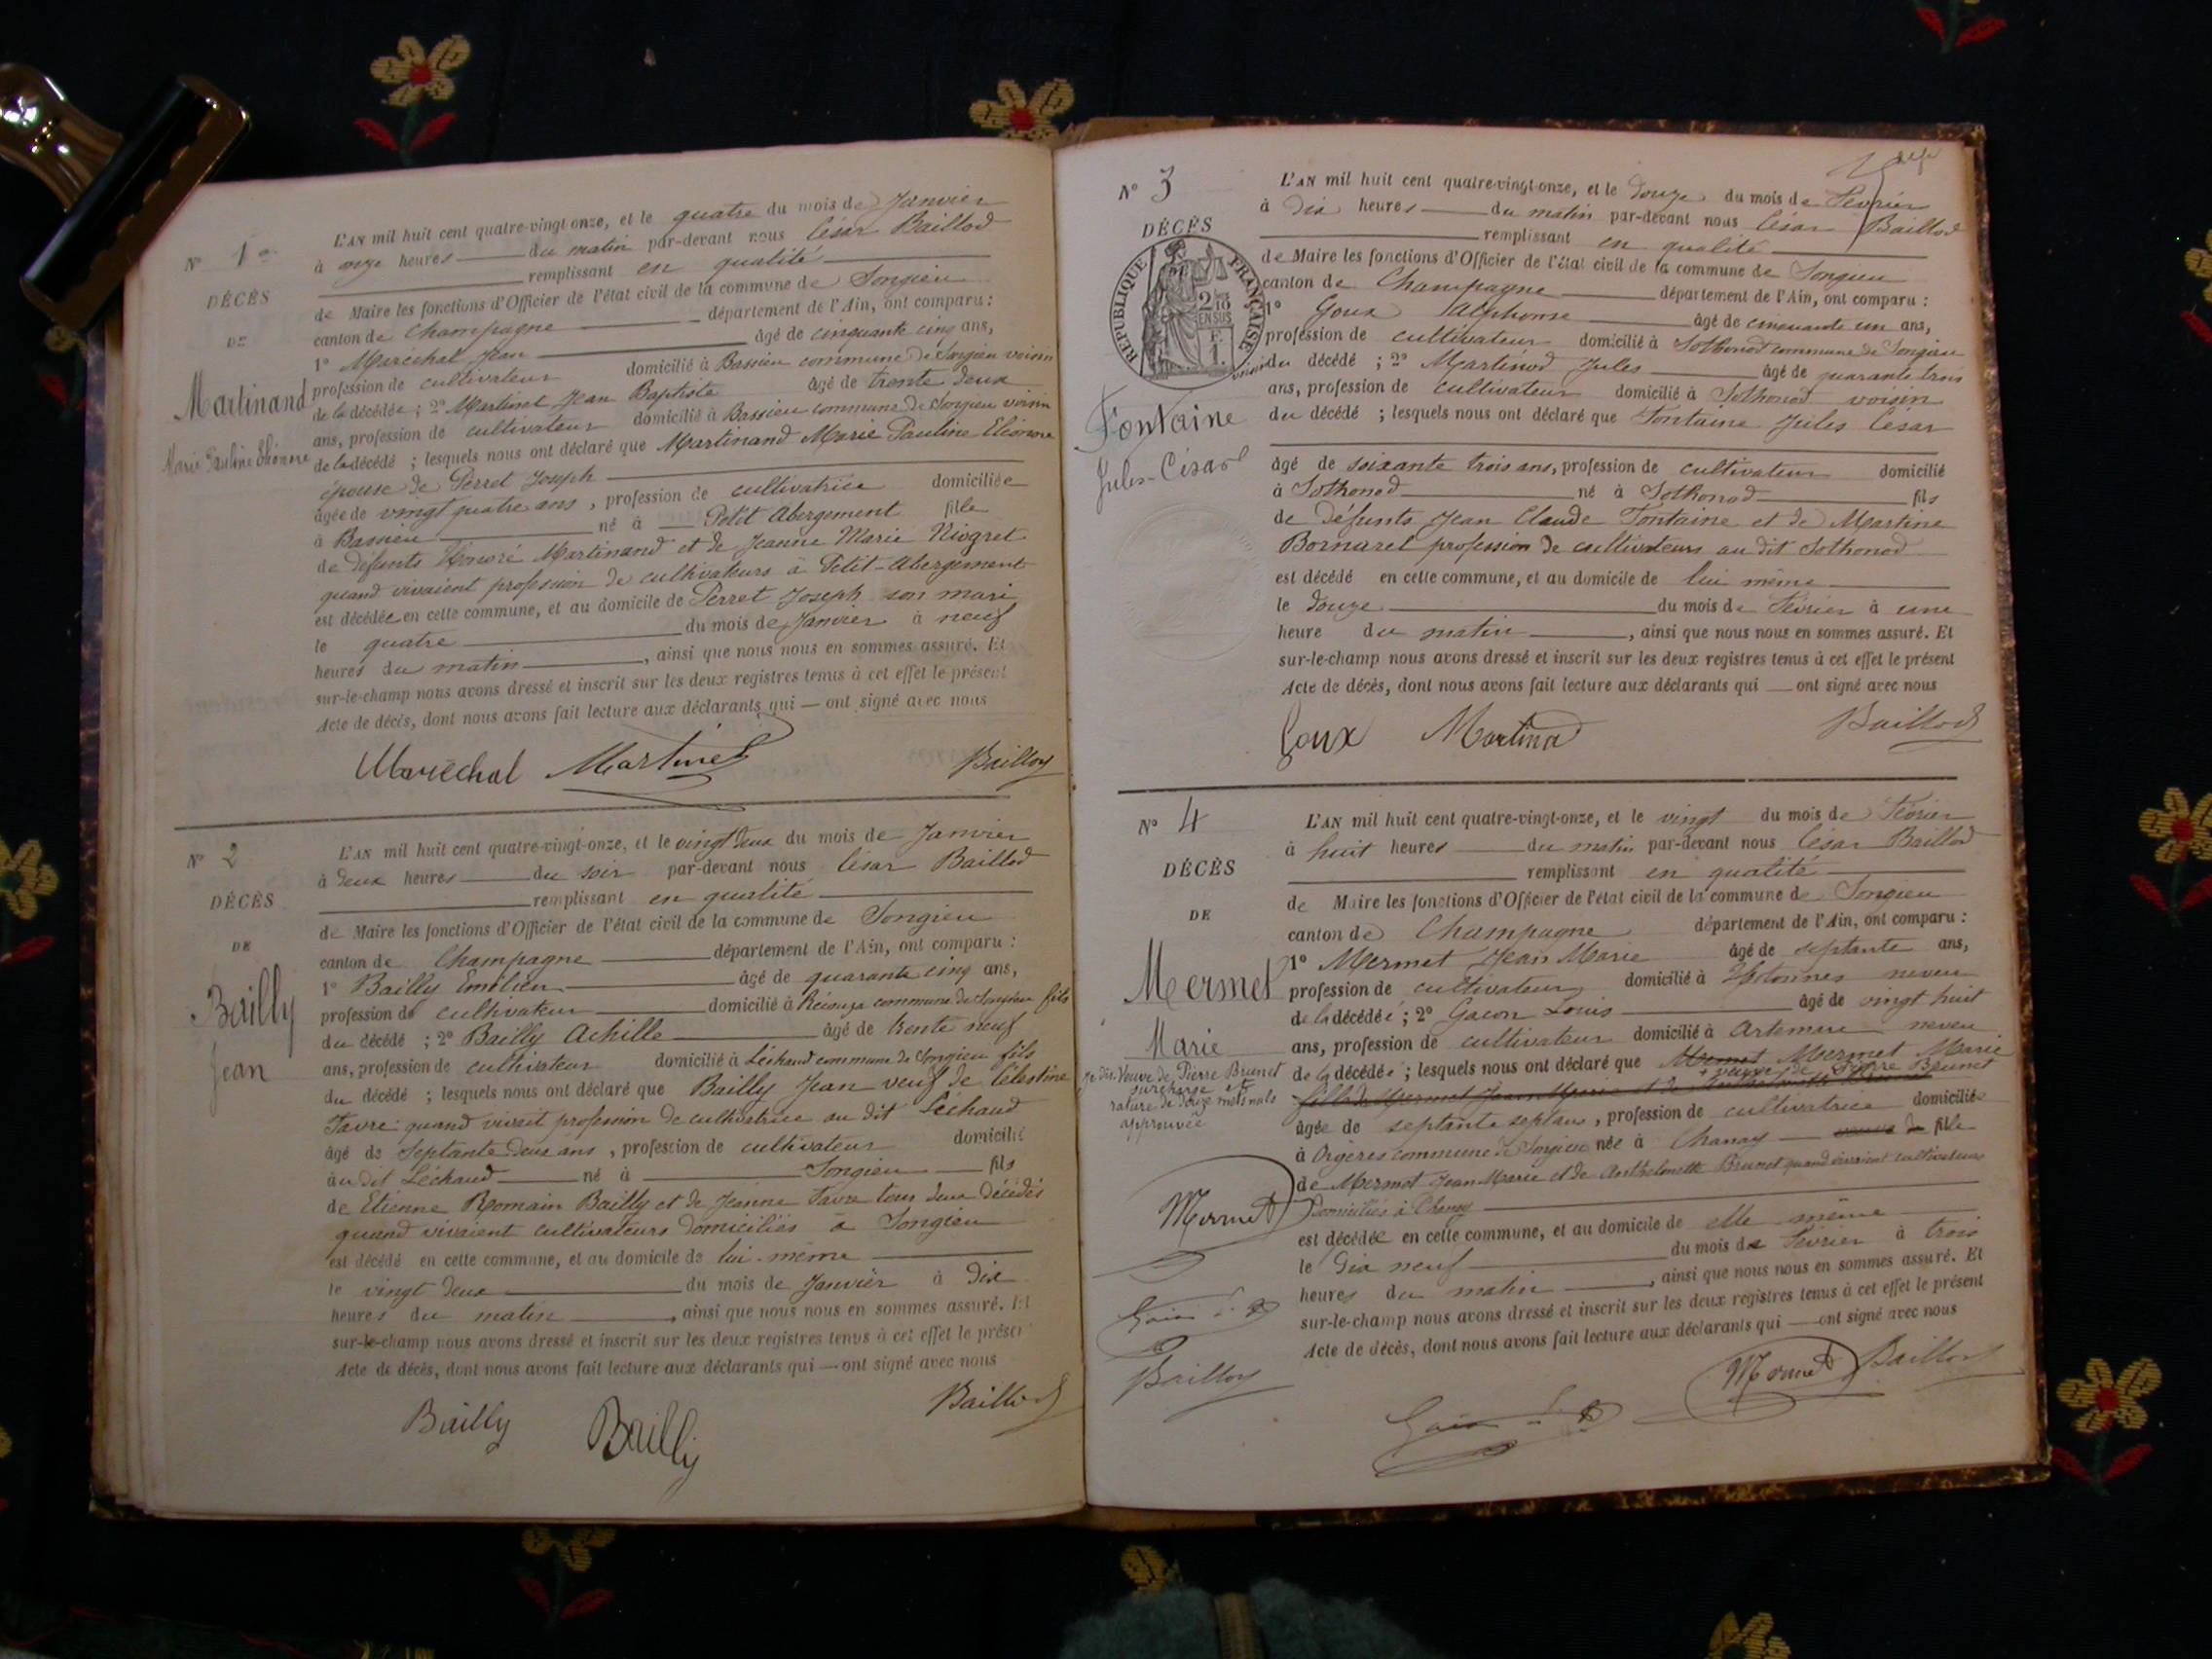 N° 1er
DÉCÈS
DE
Martinand
Marie Pauline Eléonore
L'AN mil huit cent quatre-vingt-onze, et le quatre du mois de Janvier
à onze heures du matin par-devant nous César Baillod
remplissant en qualité
de Maire les fonctions d'Officier de l'état civil de la commune de Songieu
canton de Champagne département de l'Ain, ont comparu :
1° Maréchal Jean âgé de cinquante cinq ans,
profession de cultivateur domicilié à Bassieu commune de Songieu voisin
de la décédée ; 2° Martinet Jean Baptiste âgé de trente deux
ans, profession de cultivateur domicilié à Bassieu commune de Songieu voisin
de la décédé ; lesquels nous ont déclaré que Martinand Marie Pauline Eléonore
épouse de Perret Joseph
âgée de vingt quatre ans, profession de cultivatrice domiciliée
à Bassieu né à Petit Abergement fille
de défunts Honoré Martinand et de Jeanne Marie Niogret
quand vivaient profession de cultivateurs à Petit-Abergement
est décédée en cette commune, et au domicile de Perret Joseph son mari
le quatre du mois de Janvier à neuf
heures du matin, ainsi que nous nous en sommes assuré. Et
sur-le-champ nous avons dressé et inscrit sur les deux registres tenus à cet effet le présent
Acte de décès, dont nous avons fait lecture aux déclarants qui — ont signé avec nous
Maréchal Martinet Baillod
N° 2
DÉCÈS
DE
Bailly
Jean
L'AN mil huit cent quatre-vingt-onze, et le vingt deux du mois de Janvier
à deux heures du soir par-devant nous César Baillod
remplissant en qualité
de Maire les fonctions d'Officier de l'état civil de la commune de Songieu
canton de Champagne département de l'Ain, ont comparu :
1° Bailly Emilien âgé de quarante cinq ans,
profession de cultivateur domicilié à commune de Songieu fils
du décédé ; 2° Bailly Achille âgé de trente neuf
ans, profession de cultivateur domicilié à Léchaud commune de Songieu fils
du décédé ; lesquels nous ont déclaré que Bailly Jean veuf de Célestine
Favre quand vivait profession de cultivatrice au dit Léchaud
âgé de septante deux ans, profession de cultivateur domicilié
au dit Léchaud né à Songieu fils
de Etienne Romain Bailly et de Jeanne Favre tous deux décédés
quand vivaient cultivateurs domiciliés à Songieu
est décédé en cette commune, et au domicile de lui-même
le vingt deux du mois de Janvier à dix
heures du matin, ainsi que nous nous en sommes assuré. Et
sur-le-champ nous avons dressé et inscrit sur les deux registres tenus à cet effet le présent
Acte de décès, dont nous avons fait lecture aux déclarants qui — ont signé avec nous
Bailly Bailly Baillod
N° 3
DÉCÈS
RÉPUBLIQUE FRANÇAISE
2/10 EN SUS
F. 1.
Fontaine
Jules-César
L'AN mil huit cent quatre-vingt-onze, et le douze du mois de Février
à dix heures du matin par-devant nous César Baillod
remplissant en qualité
de Maire les fonctions d'Officier de l'état civil de la commune de Songieu
canton de Champagne département de l'Ain, ont comparu :
1° Goux Alphonse âgé de cinquante un ans,
profession de cultivateur domicilié à Sothonod commune de Songieu
voisin du décédé ; 2° Martinod Jules âgé de quarante trois
ans, profession de cultivateur domicilié à Sothonod voisin
du décédé ; lesquels nous ont déclaré que Fontaine Jules César
âgé de soixante trois ans, profession de cultivateur domicilié
à Sothonod né à Sothonod fils
de défunts Jean Claude Fontaine et de Martine
Bornarel profession de cultivateurs au dit Sothonod
est décédé en cette commune, et au domicile de lui même
le douze du mois de Février à une
heure du matin, ainsi que nous nous en sommes assuré. Et
sur-le-champ nous avons dressé et inscrit sur les deux registres tenus à cet effet le présent
Acte de décès, dont nous avons fait lecture aux déclarants qui — ont signé avec nous
Goux Martinod Baillod
N° 4
DÉCÈS
DE
Mermet
Marie
Veuve de Pierre Brunet
surcharge et
rature de douze mots nuls
approuvée
Mermet
Baillod
L'AN mil huit cent quatre-vingt-onze, et le vingt du mois de Février
à huit heures du matin par-devant nous César Baillod
remplissant en qualité
de Maire les fonctions d'Officier de l'état civil de la commune de Songieu
canton de Champagne département de l'Ain, ont comparu :
1° Mermet Jean Marie âgé de septante ans,
profession de cultivateur domicilié à Hotonnes neveu
de la décédée ; 2° Gacon Louis âgé de vingt huit
ans, profession de cultivateur domicilié à Artemare neveu
de la décédée ; lesquels nous ont déclaré que Mermet Mermet Marie
veuve de Pierre Brunet
fille de Mermet Jean Marie et de Anthelmette Brunet
âgée de septante sept ans, profession de cultivatrice domiciliée
à Orgères commune de Songieu née à Chanay veuve de fille
de Mermet Jean Marie et de Anthelmette Brunet quand vivaient cultivateurs
domiciliés à Chanay
est décédée en cette commune, et au domicile de elle même
le dix neuf du mois de Février à trois
heures du matin, ainsi que nous nous en sommes assuré. Et
sur-le-champ nous avons dressé et inscrit sur les deux registres tenus à cet effet le présent
Acte de décès, dont nous avons fait lecture aux déclarants qui — ont signé avec nous
Mermet Baillod